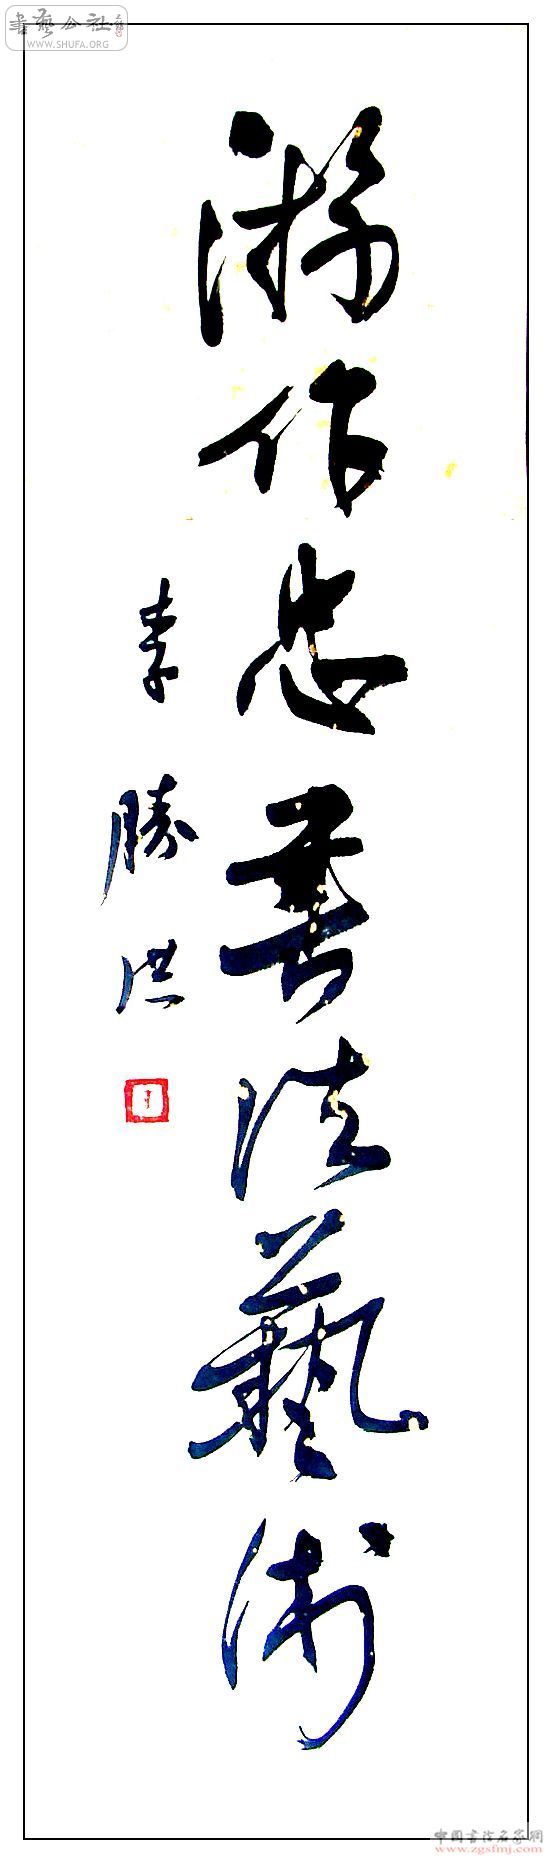 書藝公社
WWW.SHUFA.ORG
游作忠書法藝術
李勝洪
中国书法名家网
www.zgsfmj.com